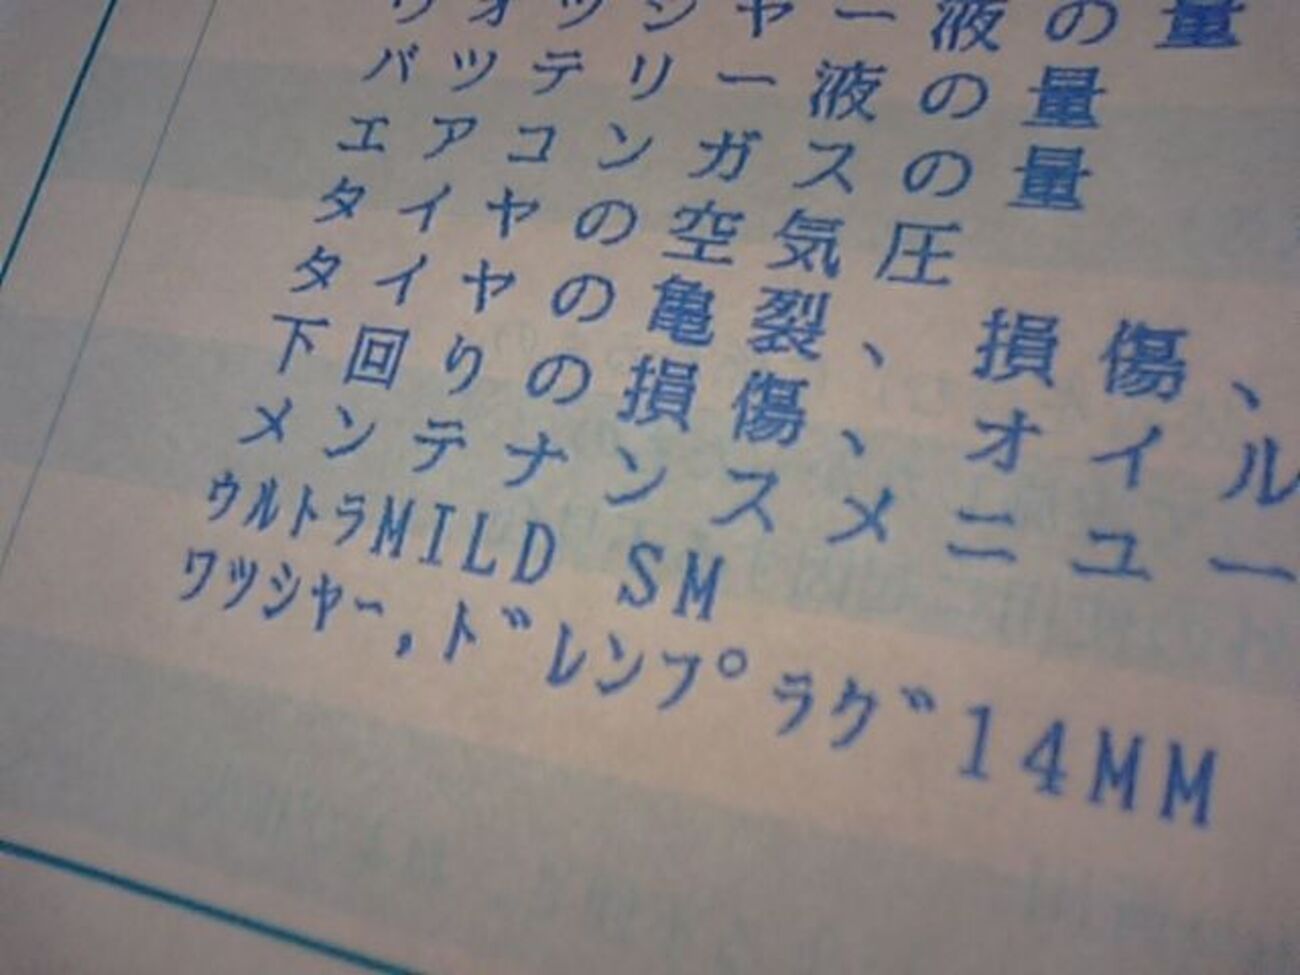 ウオッシャー液の量
バッテリー液の量
エアコンガスの量
タイヤの空気圧
タイヤの亀裂、損傷、
下回りの損傷、オイル
メンテナンスメニュー
ｳﾙﾄﾗMILD SM
ﾜﾂｼﾔｰ,ﾄﾞﾚﾝﾌﾟﾗｸﾞ14MM